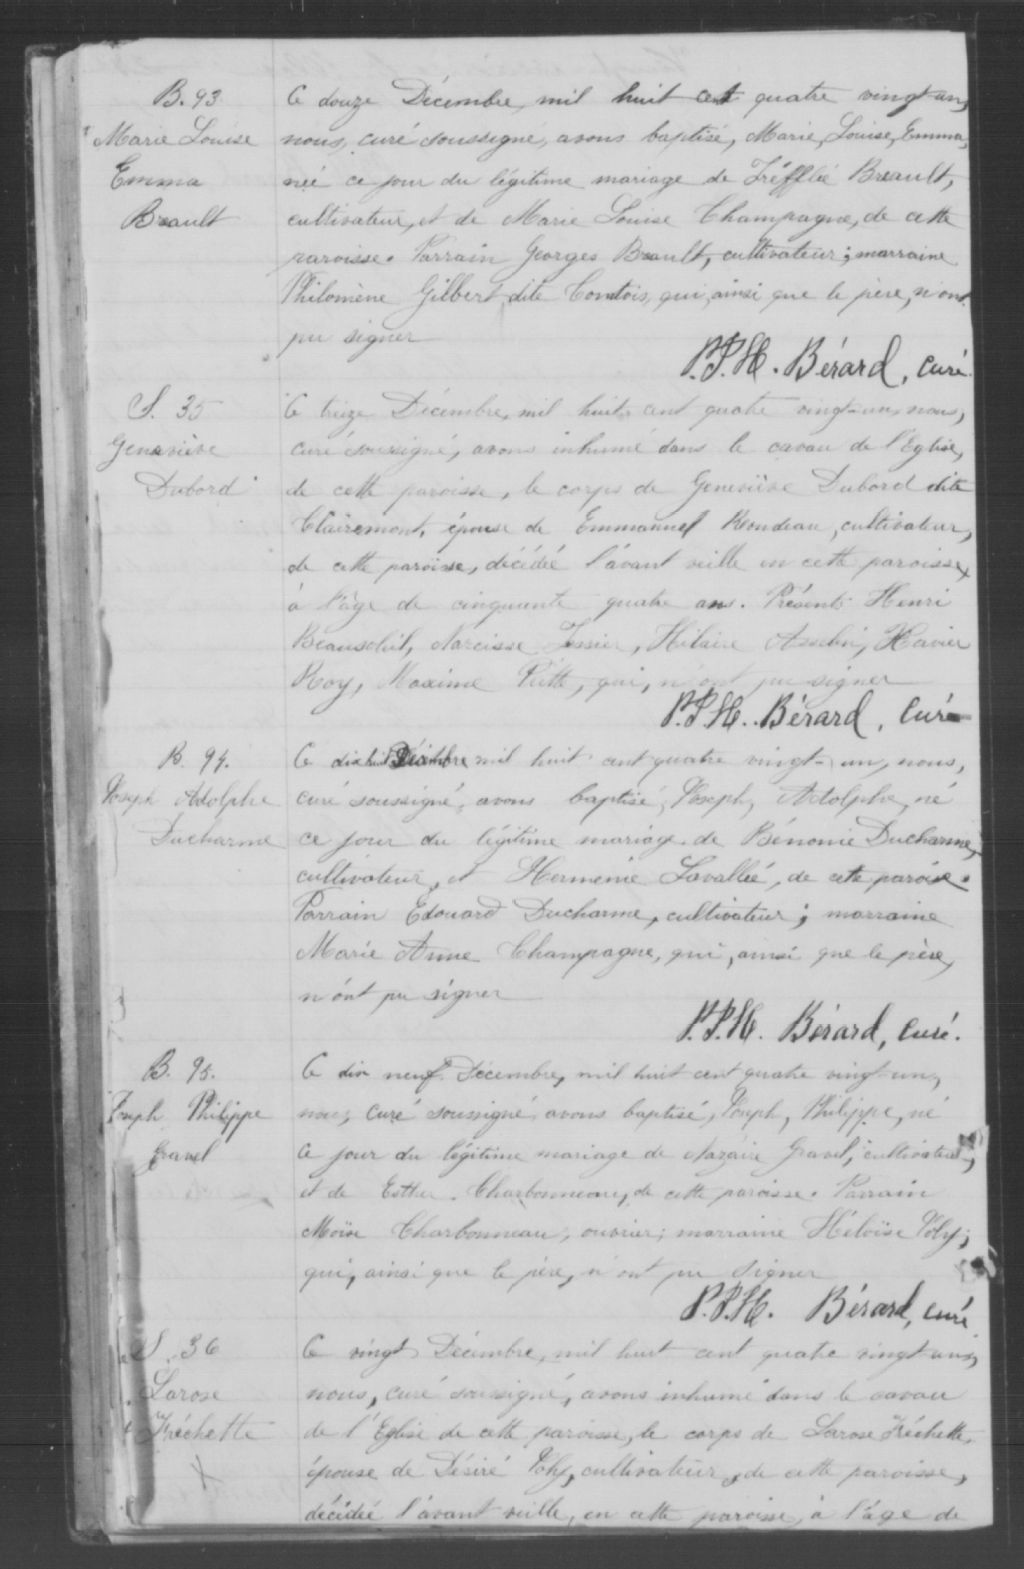 B. 93
Marie Louise
Emma
Breault
Ce douze Décembre, mil huit cent quatre vingt-un,
nous, curé soussigné, avons baptisé, Marie, Louise, Emma,
née ce jour du légitime mariage de Tréfflée Breault,
cultivateur, et de Marie Louise Champagne, de cette
paroisse. Parrain Georges Breault, cultivateur; marraine
Philomène Gilbert, dite Comtois, qui, ainsi que le père, n'ont
pu signer
P.P.H. Bérard, curé.
S. 35
Geneviève
Dubord
Ce treize Décembre, mil huit cent quatre vingt-un, nous,
curé soussigné, avons inhumé dans le caveau de l'Eglise,
de cette paroisse, le corps de Geneviève Dubord dite
Clairemont, épouse de Emmanuel Rondeau, cultivateur,
de cette paroisse, décédée l'avant veille en cette paroisse,
à l'âge de cinquante quatre ans. Présents Henri
Beausoleil, Narcisse Tessier, Hilaire Asselin, Xavier
Roy, Maxime Piette, qui, n'ont pu signer
P.P.H. Bérard, curé
B. 94.
Joseph Adolphe
Ducharme
Ce dix huit Décembre mil huit cent quatre vingt-un, nous,
curé soussigné, avons baptisé, Joseph, Adolphe, né
ce jour du légitime mariage de Bénonie Ducharme,
cultivateur, et Hermenie Lavallée, de cette paroisse.
Parrain Edouard Ducharme, cultivateur; marraine
Marie Anne Champagne, qui, ainsi que le père,
n'ont pu signer
P.P.H. Bérard, curé.
B. 95.
Joseph Philippe
Gravel
Ce dix neuf Décembre, mil huit cent quatre vingt-un,
nous, curé soussigné, avons baptisé, Joseph, Philippe, né
ce jour du légitime mariage de Nazaire Gravel, cultivateur,
et de Esther Charbonneau, de cette paroisse. Parrain
Moïse Charbonneau, ouvrier; marraine Héloïse Joly;
qui, ainsi que le père, n'ont pu signer
P.P.H. Bérard, curé
S. 36
Larose
Fréchette
X
Ce vingt Décembre, mil huit cent quatre vingt-un,
nous, curé soussigné, avons inhumé dans le caveau
de l'Eglise de cette paroisse, le corps de Larose Fréchette,
épouse de Désiré Joly, cultivateur, de cette paroisse,
décédée l'avant veille, en cette paroisse, à l'âge de